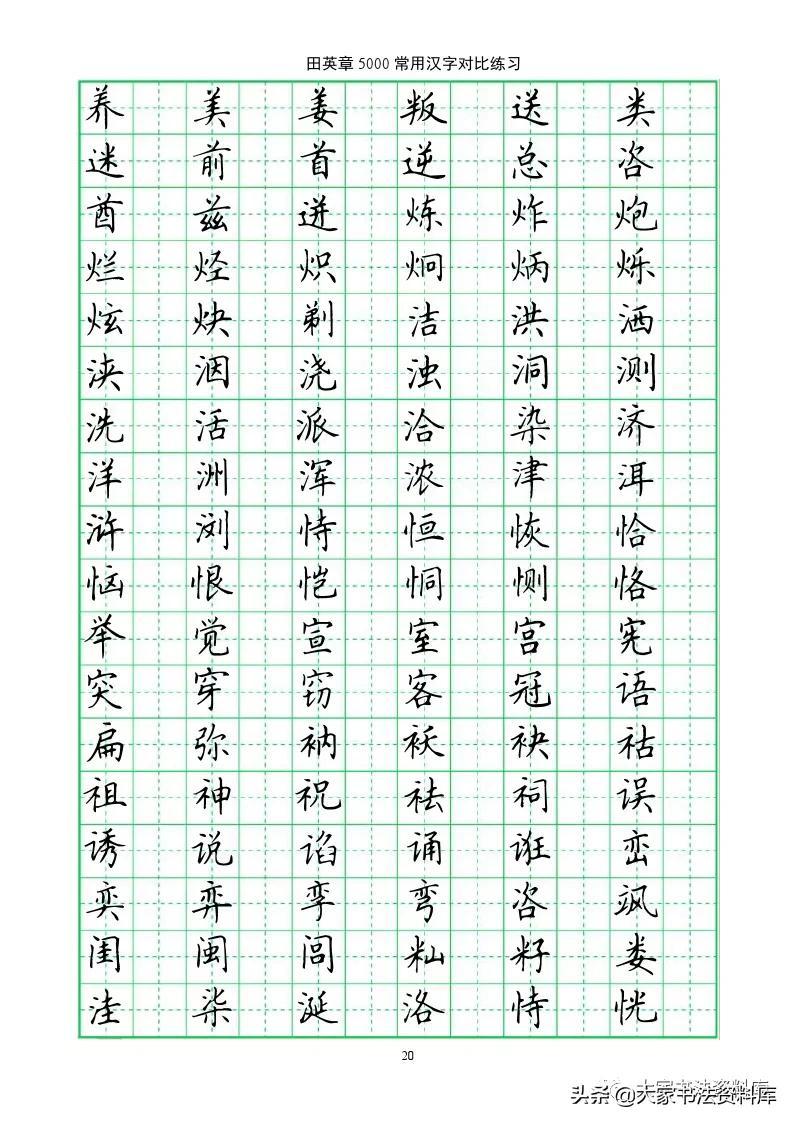 田英章 5000 常用汉字对比练习
养 美 姜 叛 送 类
迷 前 首 逆 总 咨
酋 兹 迸 炼 炸 炮
烂 烃 炽 炯 炳 烁
炫 炔 剃 洁 洪 洒
浃 洇 浇 浊 洞 测
洗 活 派 洽 染 济
洋 洲 浑 浓 津 洱
浒 浏 恃 恒 恢 恰
恼 恨 恺 恫 恻 恪
举 觉 宣 室 宫 宪
突 穿 窃 客 冠 语
扁 弥 衲 袄 袂 祜
祖 神 祝 祛 祠 误
诱 说 谄 诵 诳 峦
奕 弈 孪 弯 咨 飒
闺 闽 闾 籼 籽 娄
洼 柒 涎 洛 恃 恍
20
头条 @大家书法资料库